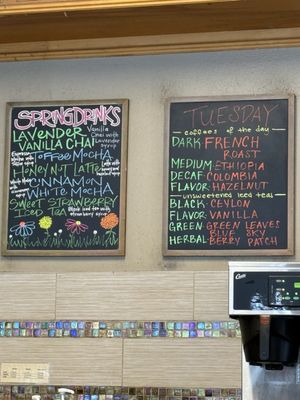 SPRING DRINKS
LAVENDER
VANILLA CHAI
Vanilla
Chai with
Lavender
syrup
Toffee Mocha
Honey Nut Latte
Cinnamon
White Mocha
Sweet Strawberry
Iced Tea
Black iced tea
with
strawberry syrup
TUESDAY
coffees of the day
DARK FRENCH
ROAST
MEDIUM ETHIOPIA
DECAF COLOMBIA
FLAVOR HAZELNUT
unsweetened iced teas
BLACK CEYLON
FLAVOR VANILLA
GREEN GREEN LEAVES
BLUE SKY
HERBAL BERRY PATCH
Curtis